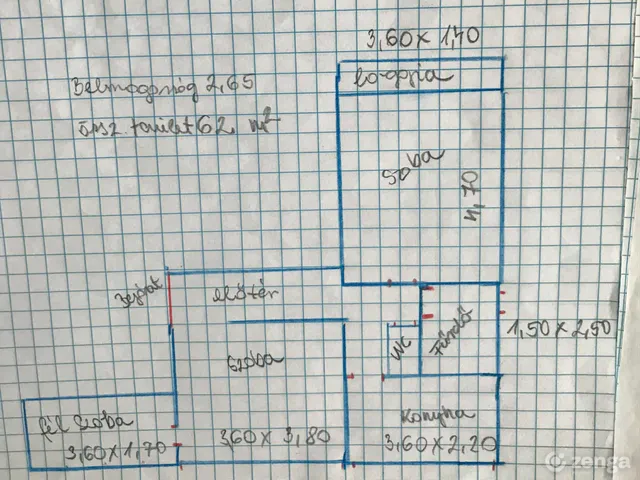 3,60 x 1,40
loggia
Belmagasság 2,65
össz. terület 62 m²
Szoba
4,70
Bejárat
előtér
WC
Fürdő
1,50 x 2,50
Szoba
3,60 x 3,80
fél szoba
3,60 x 1,70
Konyha
3,60 x 2,20
zenga